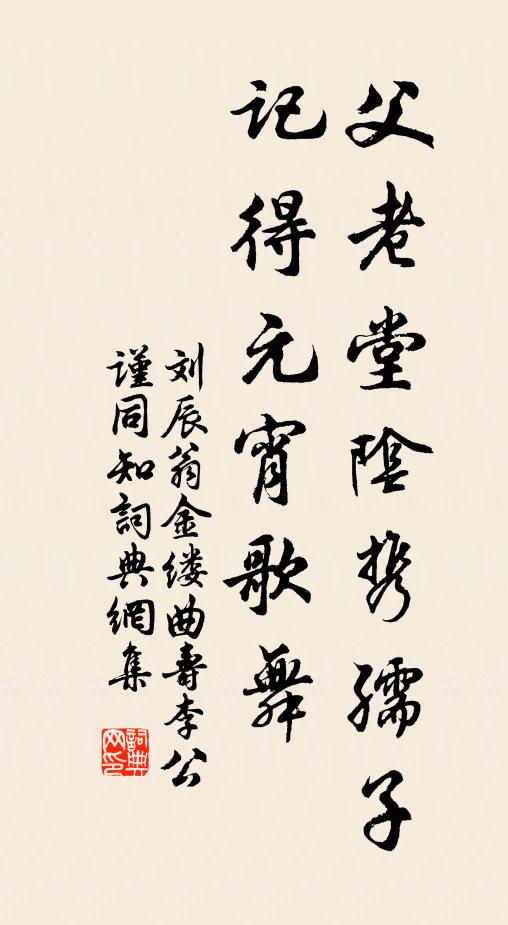 父老堂陰携孺子
记得元宵歌舞
刘辰翁金缕曲壽李公
谨同知詞典網集
詞典网印